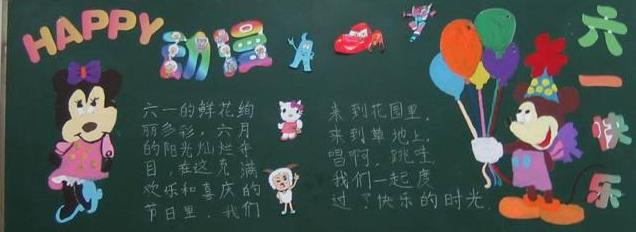 HAPPY
动漫
六一快乐
六一的鲜花绚
丽多彩，六月
的阳光灿烂夺
目，在这充满
欢乐和喜庆的
节日里，我们
来到花园里，
来到草地上，
唱啊，跳哇
我们一起度
过了快乐的时光